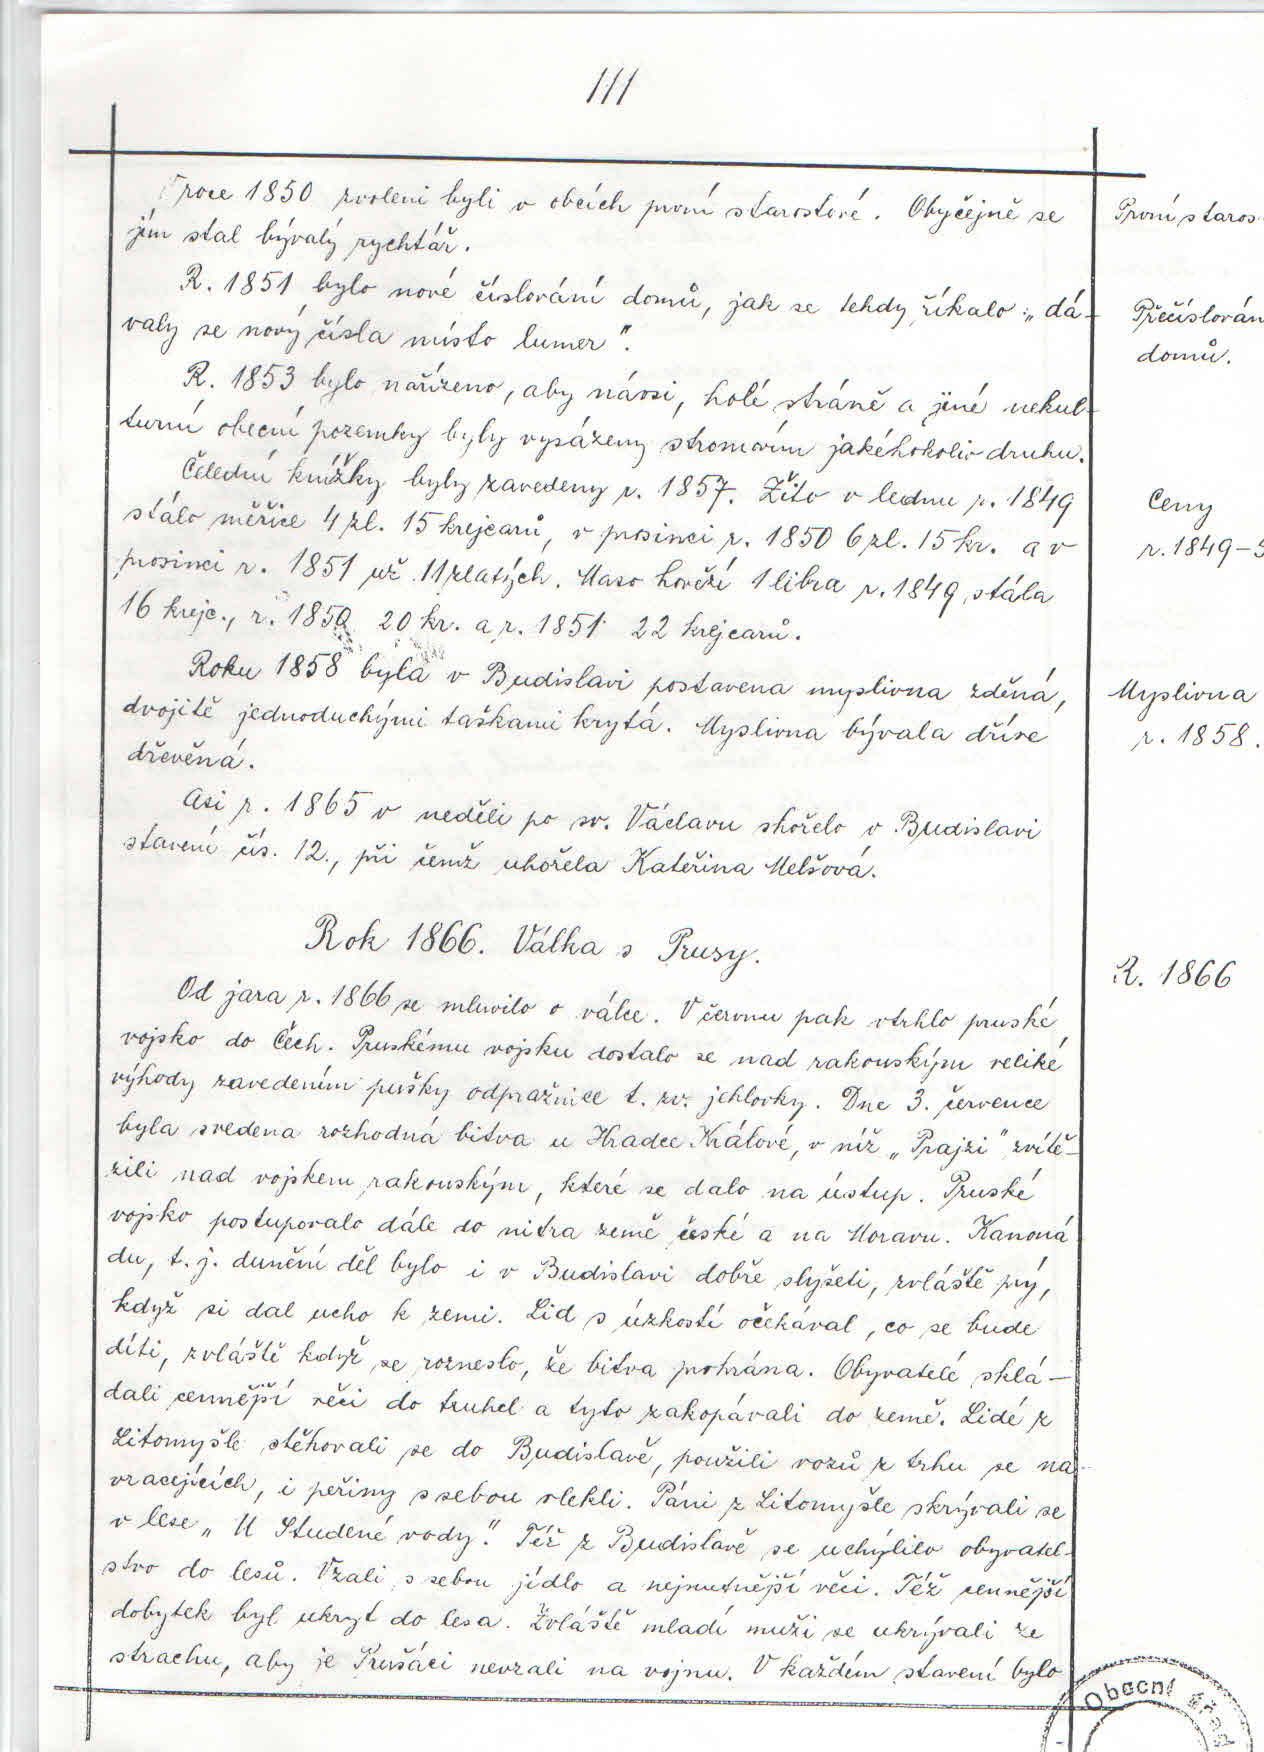 111
V roce 1850 zvoleni byli v obcích první starostové. Obyčejně se
První staros
jím stal bývalý rychtář.
R. 1851 bylo nové číslování domů, jak se tehdy říkalo: „dá-
Přečíslován
valy se nový čísla místo lumer".
domů.
R. 1853 bylo nařízeno, aby návsi, holé stráně a jiné nekul-
turní obecní pozemky byly vysázeny stromovím jakéhokoliv druhu.
Čelední knížky byly zavedeny r. 1857. Žito v lednu r. 1849
Ceny
stálo měřice 4 zl. 15 krejcarů, v prosinci r. 1850 6 zl. 15 kr. a v
r. 1849-5
prosinci r. 1851 už 11 zlatých. Maso hovězí 1 libra r. 1849 stála
16 krejc., r. 1850 20 kr. a r. 1851 22 krejcarů.
Roku 1858 byla v Budislavi postavena myslivna zděná,
Myslivna
dvojitě jednoduchými taškami krytá. Myslivna bývala dříve
r. 1858.
dřevěná.
Asi r. 1865 v neděli po sv. Václavu shořelo v Budislavi
stavení čís. 12., při čemž uhořela Kateřina Melšová.
Rok 1866. Válka s Prusy.
R. 1866
Od jara r. 1866 se mluvilo o válce. V červnu pak vtrhlo pruské
vojsko do Čech. Pruskému vojsku dostalo se nad rakouským veliké
výhody zavedením pušky odpražnice t. zv. jehlovky. Dne 3. července
byla svedena rozhodná bitva u Hradce Králové, v níž „Prajzi" zvítě-
zili nad vojskem rakouským, které se dalo na ústup. Pruské
vojsko postupovalo dále do nitra země české a na Moravu. Kanoná
du, t. j. dunění děl bylo i v Budislavi dobře slyšeti, zvláště prý,
když si dal ucho k zemi. Lid s úzkostí očekával, co se bude
díti, zvláště když se rozneslo, že bitva prohrána. Obyvatelé sklá-
dali cennější věci do truhel a tyto zakopávali do země. Lidé z
Litomyšle stěhovali se do Budislavě, použili vozů z trhu se na-
vracejících, i peřiny s sebou vlekli. Páni z Litomyšle skrývali se
v lese „U Studené vody." Též z Budislavě se uchýlilo obyvatel-
stvo do lesů. Vzali s sebou jídlo a nejnutnější věci. Též cennější
dobytek byl ukryt do lesa. Zvláště mladí muži se ukrývali ze
strachu, aby je Prušáci nevzali na vojnu. V každém stavení bylo
Obecní úřad